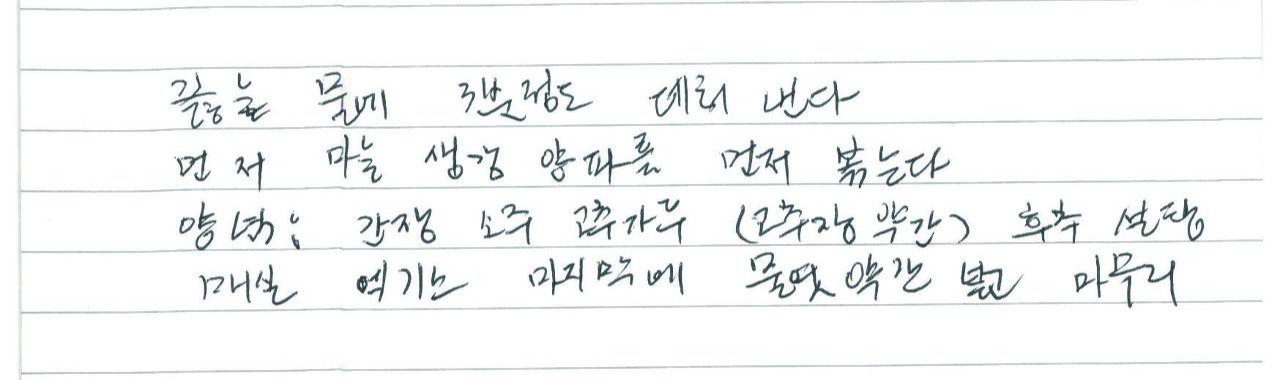 끓는 물에 3분정도 데쳐 낸다
먼저 마늘 생강 양파를 먼저 볶는다
양념; 간장 소주 고추가루 (고추장 약간) 후추 설탕
매실 엑기스 마지막에 물엿 약간 넣고 마무리